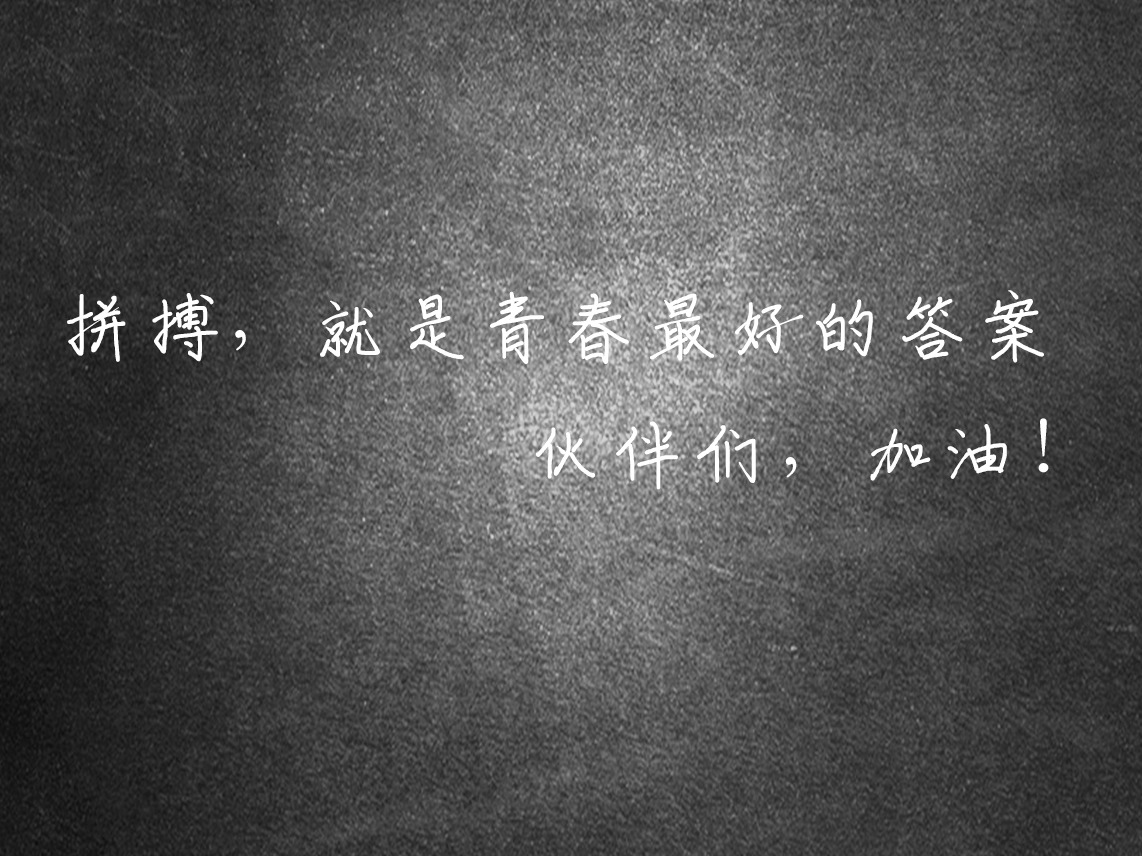 拼搏，就是青春最好的答案
伙伴们，加油！